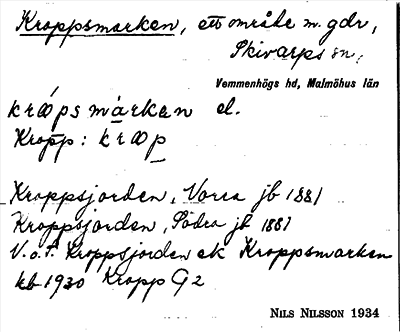 Kroppsmarken, ett område m. gdr,
Skivarps sn,
Vemmenhögs hd, Malmöhus län
krǿpsmárken el.
Kropp: krǿp
Kroppsjorden, Norra jb 1881
Kroppsjorden, Södra jb 1881
V. o. f. Kroppsjorden ek Kroppsmarken
kb 1930 Kropp G2
NILS NILSSON 1934